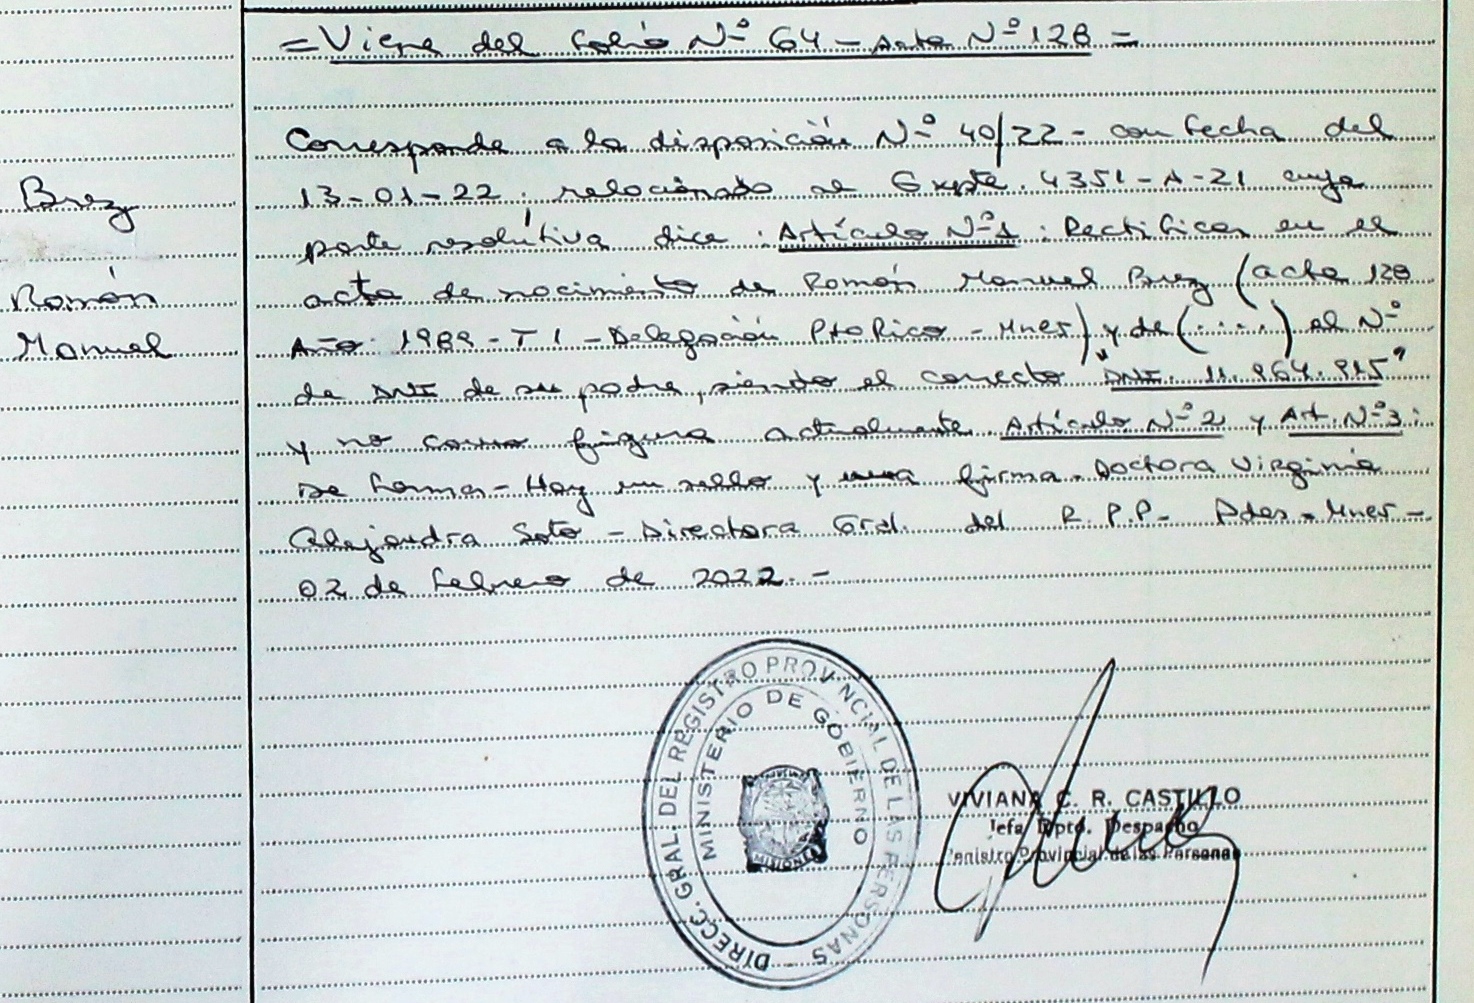 = Viene del folio Nº 64 - Acta Nº 128 =
Corresponde a la disposición Nº 40/22 - con fecha del
Brez
13-01-22; relacionado al Expte. 4351-A-21 cuya
parte resolutiva dice: Artículo Nº 1: Rectificar en el
Román
acta de nacimiento de Román Manuel Brez (acta 128
Manuel
Año 1989 - T 1 - Delegación Pto Rico - Mnes) y de (....) el Nº
de DNI de su padre, siendo el correcto "DNI. 11.964.915"
y no como figura actualmente. Artículo Nº 2 y Art. Nº 3:
De forma - Hay un sello y una firma. Doctora Virginia
Alejandra Soto - Directora Gral. del R.P.P. - Pdas - Mnes -
02 de febrero de 2022. -
DIRECC. GRAL. DEL REGISTRO PROVINCIAL DE LAS PERSONAS
MINISTERIO DE GOBIERNO
MISIONES
VIVIANA C. R. CASTILLO
Jefa Dpto. Despacho
Provincial de las Personas